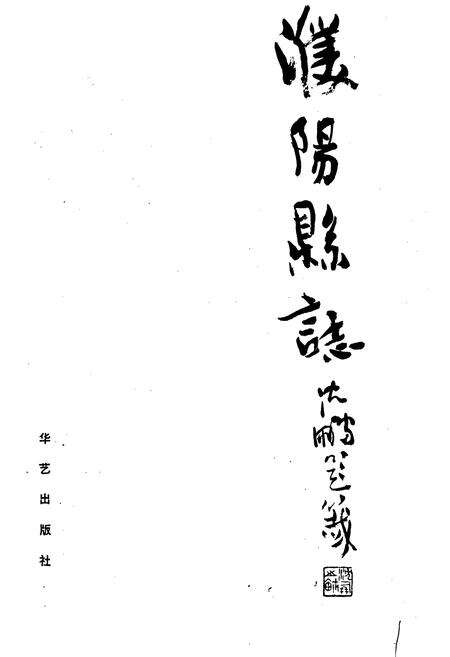 濮陽縣誌
沈鹏题籤
华艺出版社